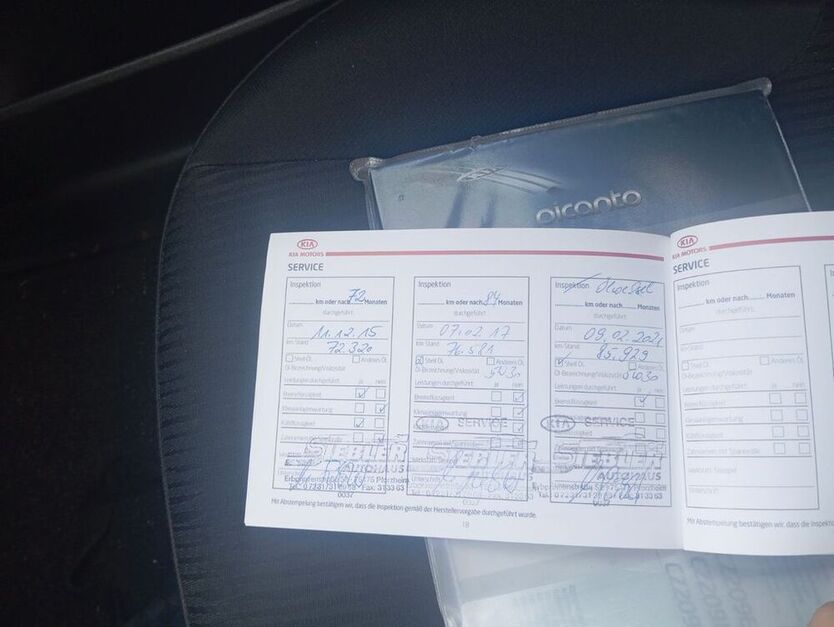 picanto
KIA
KIA MOTORS
SERVICE
Inspektion
km oder nach 72 Monaten
durchgeführt
Datum
11.12.15
km-Stand
72.320
Shell Öl
Anderes Öl
Öl-Bezeichnung/Viskosität
Leistungen durchgeführt
ja nein
Bremsflüssigkeit
Klimaanlagewartung
Kühlflüssigkeit
SIEBLER
AUTOHAUS
75175 Pforzheim
0037
Inspektion
km oder nach 84 Monaten
durchgeführt
Datum
07.02.17
km-Stand
76.581
Shell Öl
Anderes Öl
Öl-Bezeichnung/Viskosität
5W30
Leistungen durchgeführt
ja nein
Bremsflüssigkeit
Klimaanlagewartung
KIA SERVICE
SIEBLER
AUTOHAUS
Inspektion Ölwechsel
km oder nach Monaten
durchgeführt
Datum
09.02.2021
km-Stand
85.929
Shell Öl
Anderes Öl
Öl-Bezeichnung/Viskosität
5W30
Leistungen durchgeführt
ja nein
Bremsflüssigkeit
KIA SERVICE
SIEBLER
AUTOHAUS
Mit Abstempelung bestätigen wir, dass die Inspektion gemäß der Herstellervorgabe durchgeführt wurde.
18
KIA
KIA MOTORS
SERVICE
Inspektion
km oder nach Monaten
durchgeführt
Datum
km-Stand
Shell Öl
Anderes Öl
Öl-Bezeichnung/Viskosität
Leistungen durchgeführt
ja nein
Bremsflüssigkeit
Klimaanlagewartung
Kühlflüssigkeit
Werkstatt/Stempel
Unterschrift
Mit Abstempelung bestätigen wir, dass die Inspektion